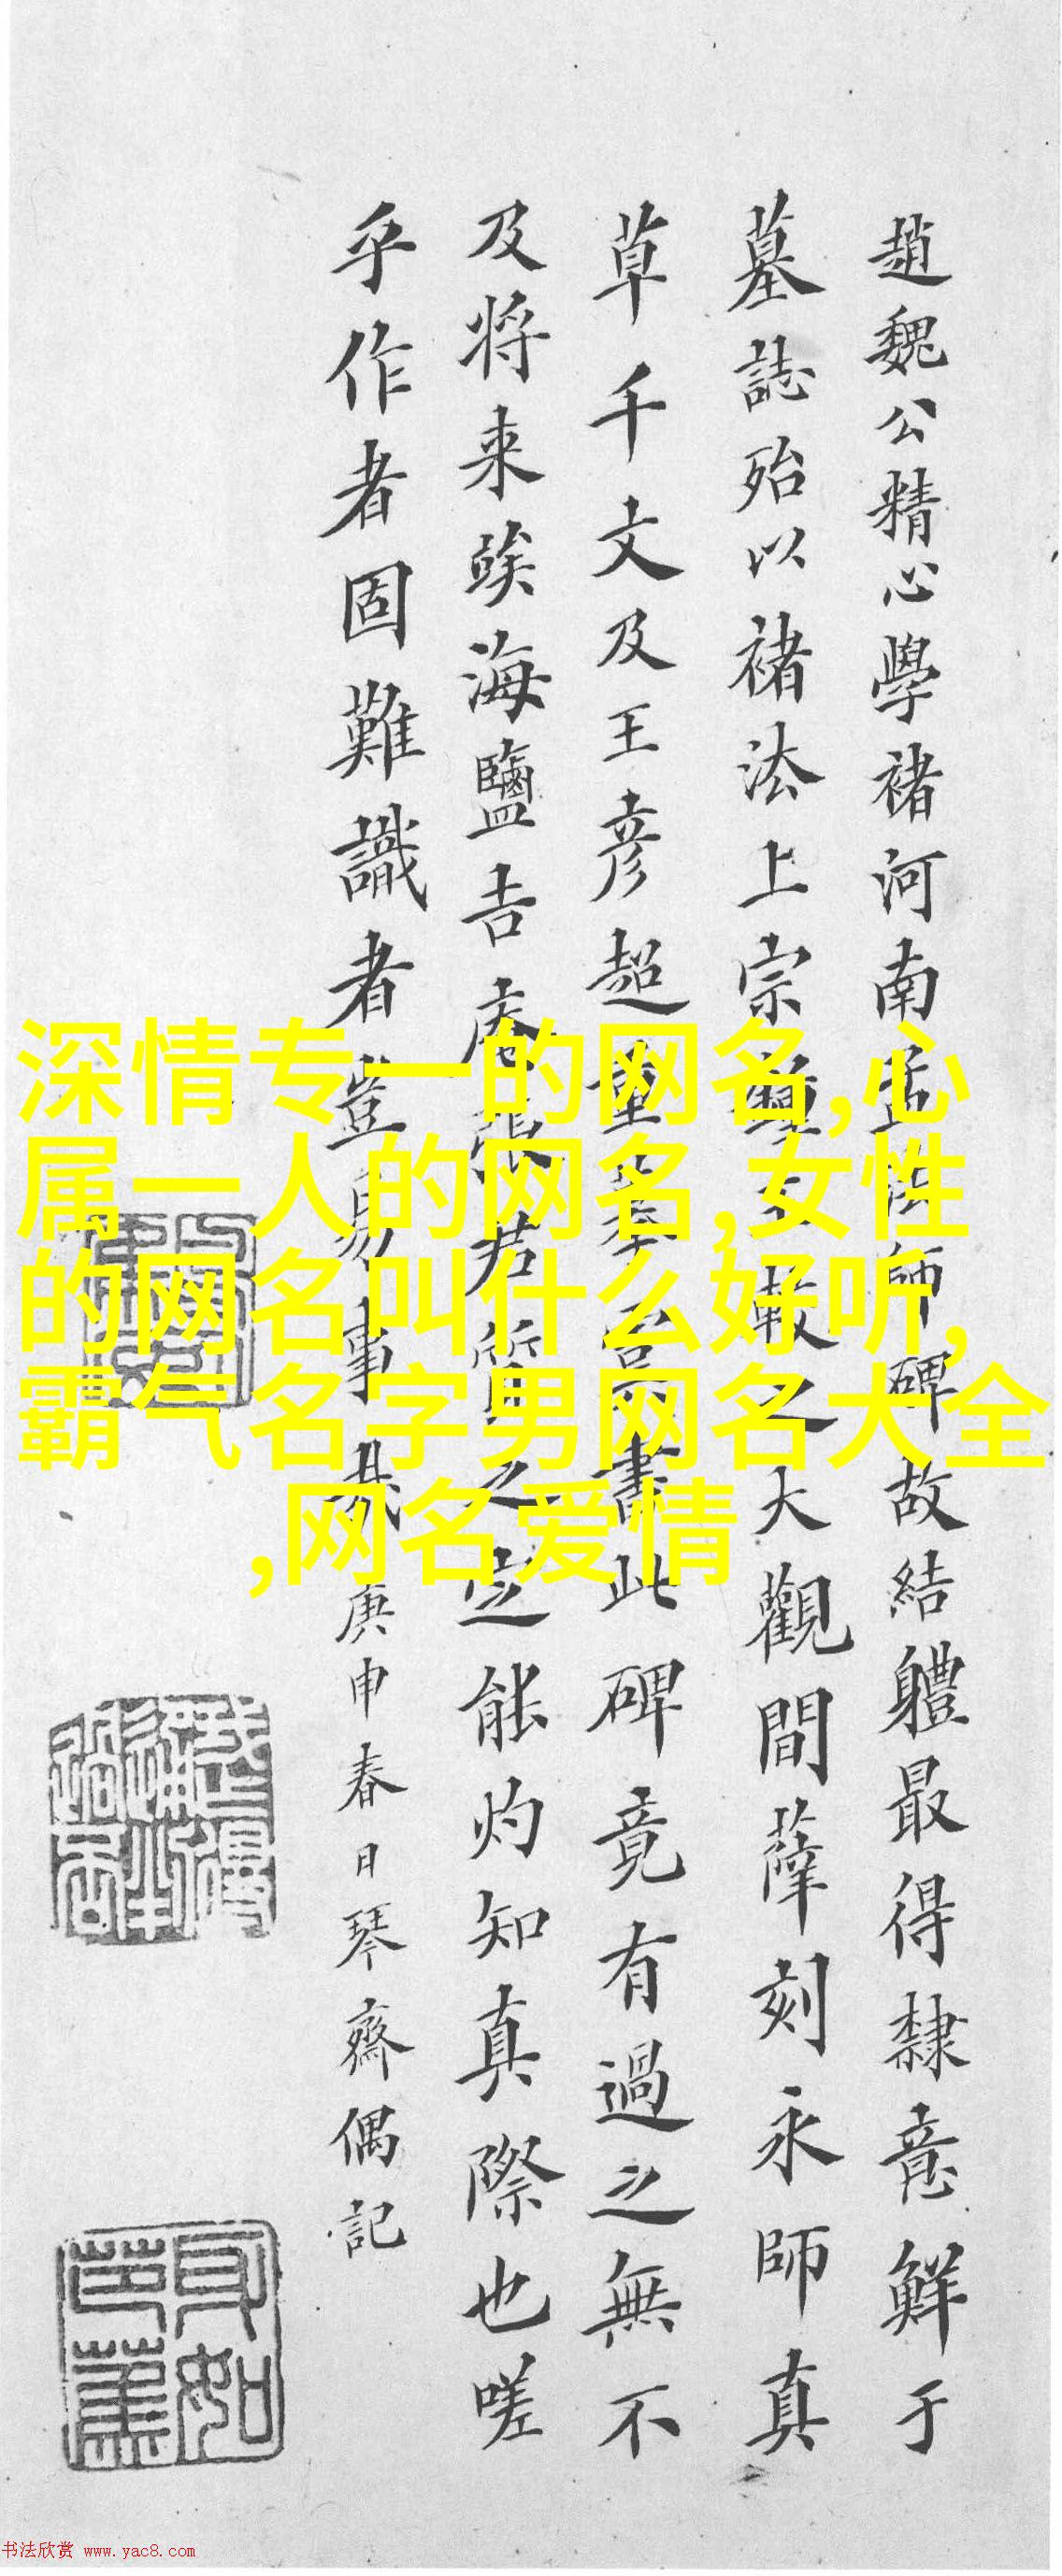 趙魏公精心學褚河南孟法師碑故結軆最得隸意鮮于
墓誌殆以褚法上宗尊之較之大觀間薛刻永師真
草千文及王彦超重摹虞書此碑竟有過之無不
及将来竢海鹽吉庵張君質之定能灼知真際也嗟
乎作者固難識者豈易事哉
庚申春日琴齋偶記
深情专一的网名,心
属一人的网名,女性
的网名叫什么好听,
霸气名字男网名大全
,网名爱情
书法欣赏 www.yac8.com